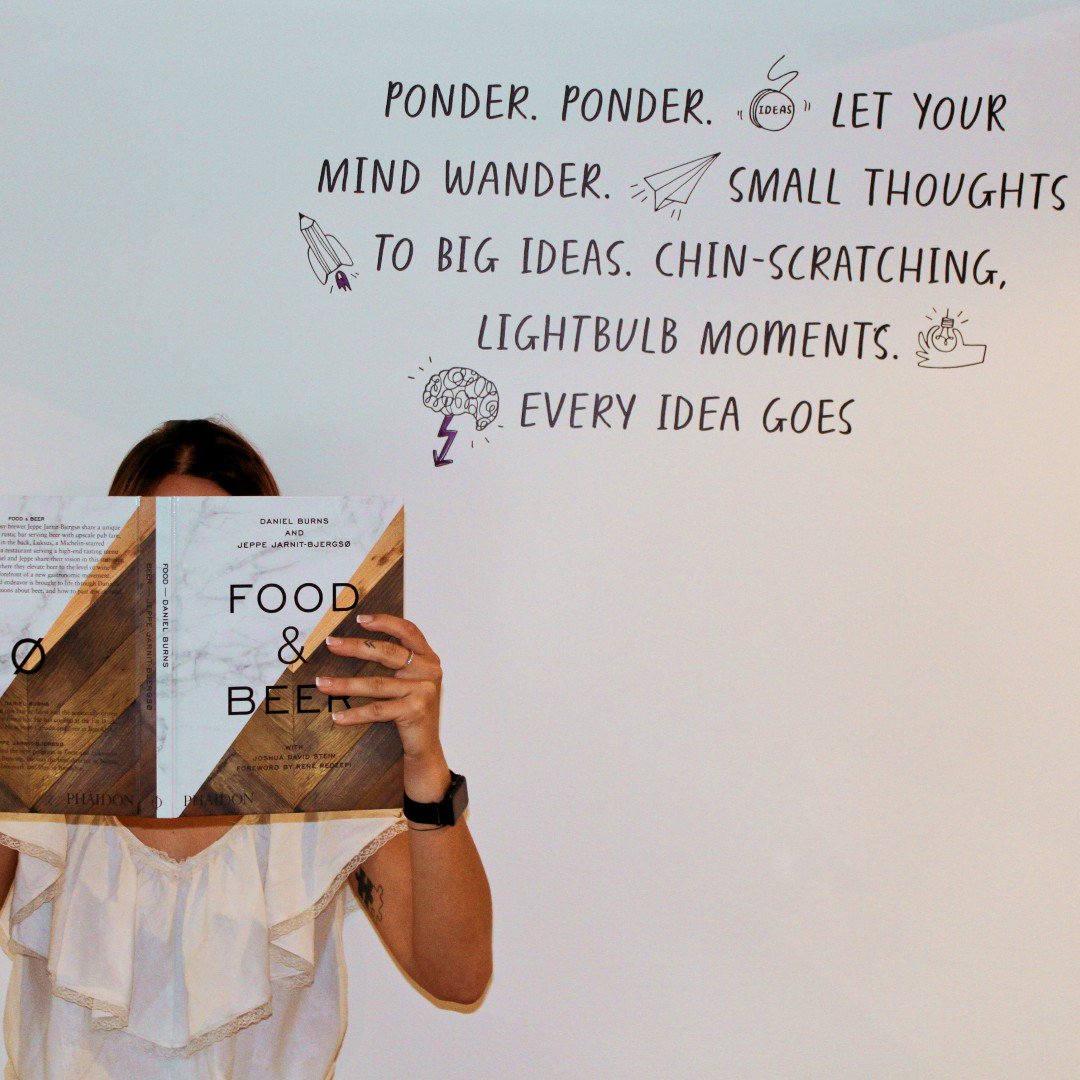 PONDER. PONDER. IDEAS LET YOUR
MIND WANDER. SMALL THOUGHTS
TO BIG IDEAS. CHIN-SCRATCHING,
LIGHTBULB MOMENTS.
EVERY IDEA GOES
FOOD & BEER
brewer Jeppe Jarnit-Bjergsø share a unique
rustic bar serving beer with upscale pub fare,
in the back, Luksus, a Michelin-starred
restaurant serving a high-end tasting menu
and Jeppe share their vision in this
where they elevate beer to the level of wine
forefront of a new gastronomic movement
endeavor is brought to life through
about beer, and how to
Ø
JARNIT-BJERGSØ
PHAIDON
BEER — JEPPE JARNIT-BJERGSØ
FOOD — DANIEL BURNS
DANIEL BURNS
AND
JEPPE JARNIT-BJERGSØ
FOOD
&
BEER
WITH
JOSHUA DAVID STEIN
FOREWORD BY RENÉ REDZEPI
PHAIDON